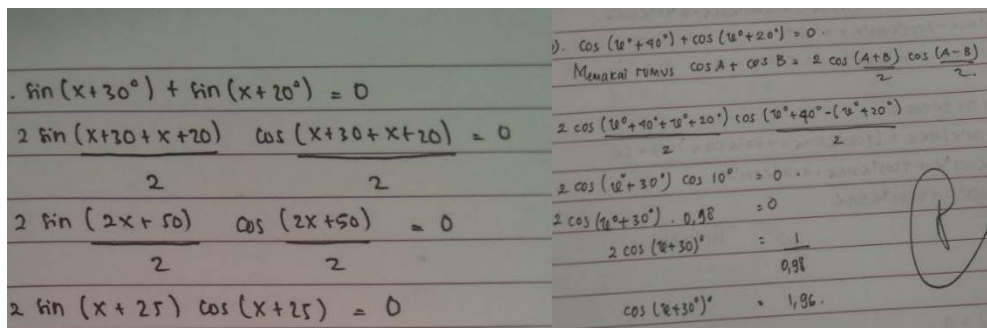 . sin (x+30°) + sin (x+20°) = 0
2 sin (x+30+x+20) cos (x+30+x+20) = 0
2 2
2 sin (2x+50) cos (2x+50) = 0
2 2
2 sin (x+25) cos (x+25) = 0
). cos (x°+40°) + cos (x°+20°) = 0
Memakai rumus cos A + cos B = 2 cos (A+B) cos (A-B)
2 2.
2 cos (x°+40°+x°+20°) cos (x°+40°-(x°+20°)
2 2
2 cos (x°+30°) cos 10° = 0.
2 cos (x°+30°) . 0,98 = 0
2 cos (x+30)° = 1
0,98
cos (x+30°)° = 1,96.